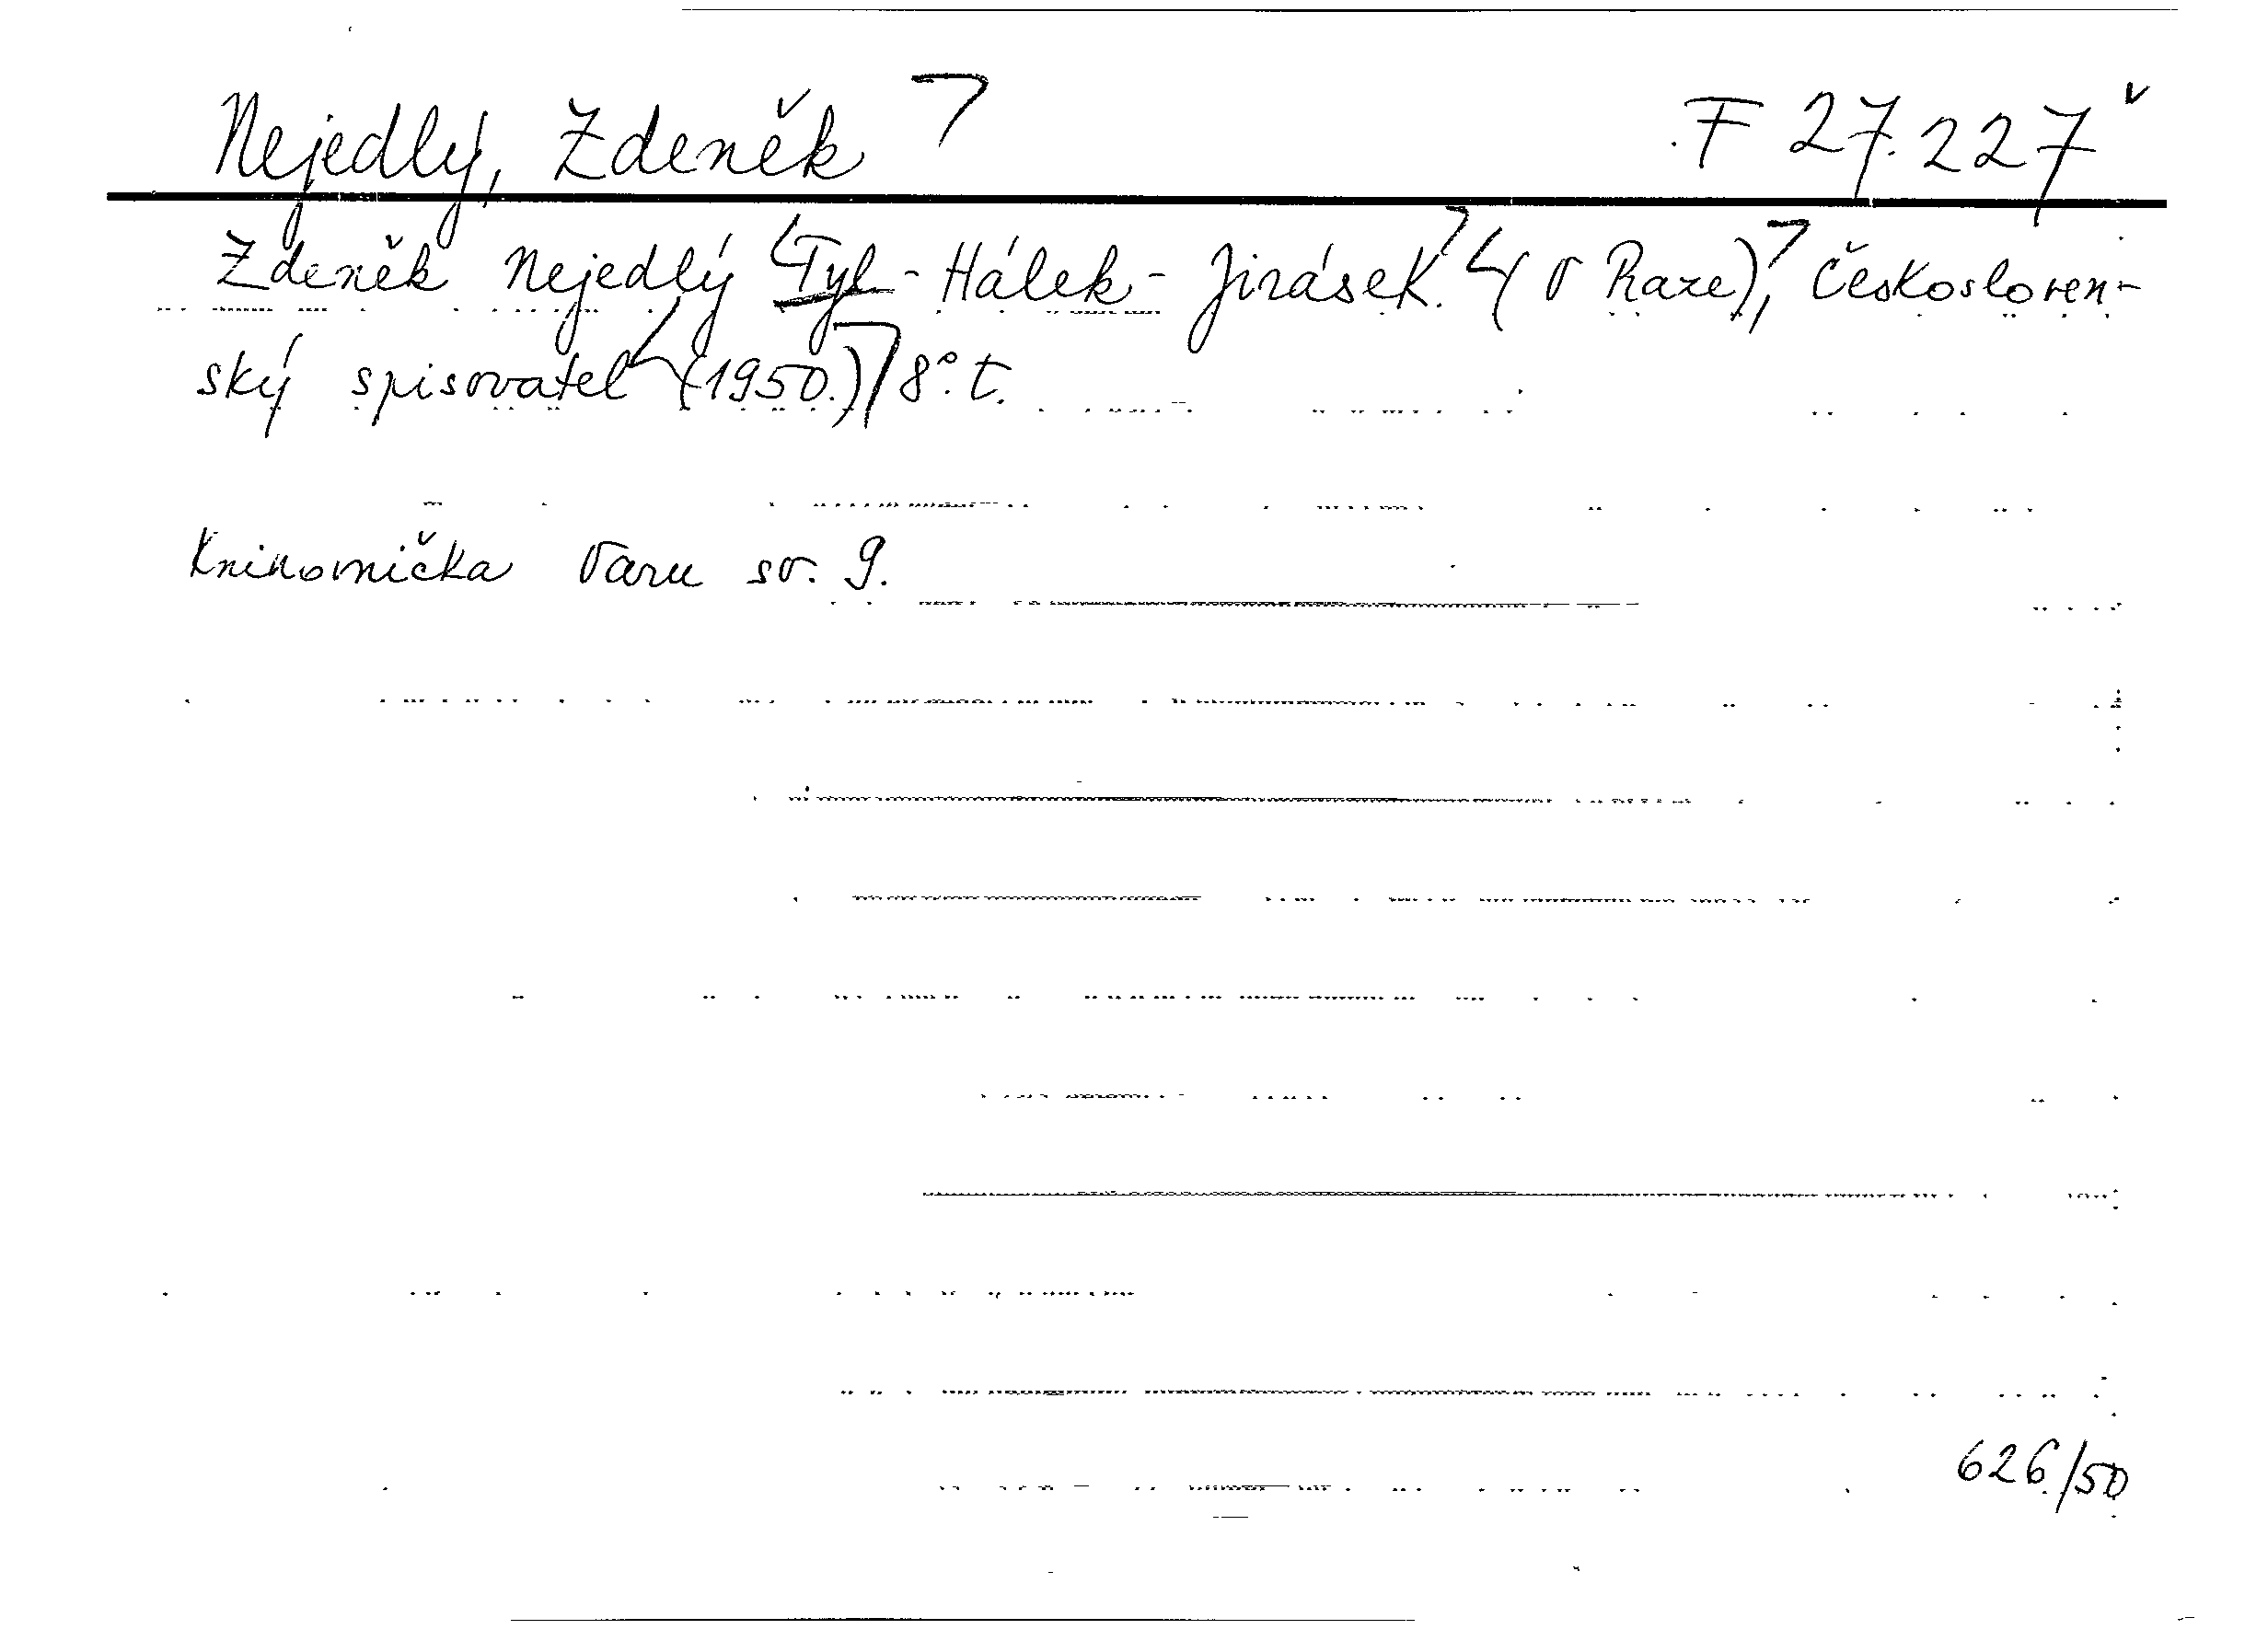 Nejedlý, Zdeněk F 27.227
Zdeněk Nejedlý Tyl - Hálek - Jirásek. (V Praze), Českosloven-
ský spisovatel (1950.) 8°. t.
Knihovnička Varu sv. 9.
626/50